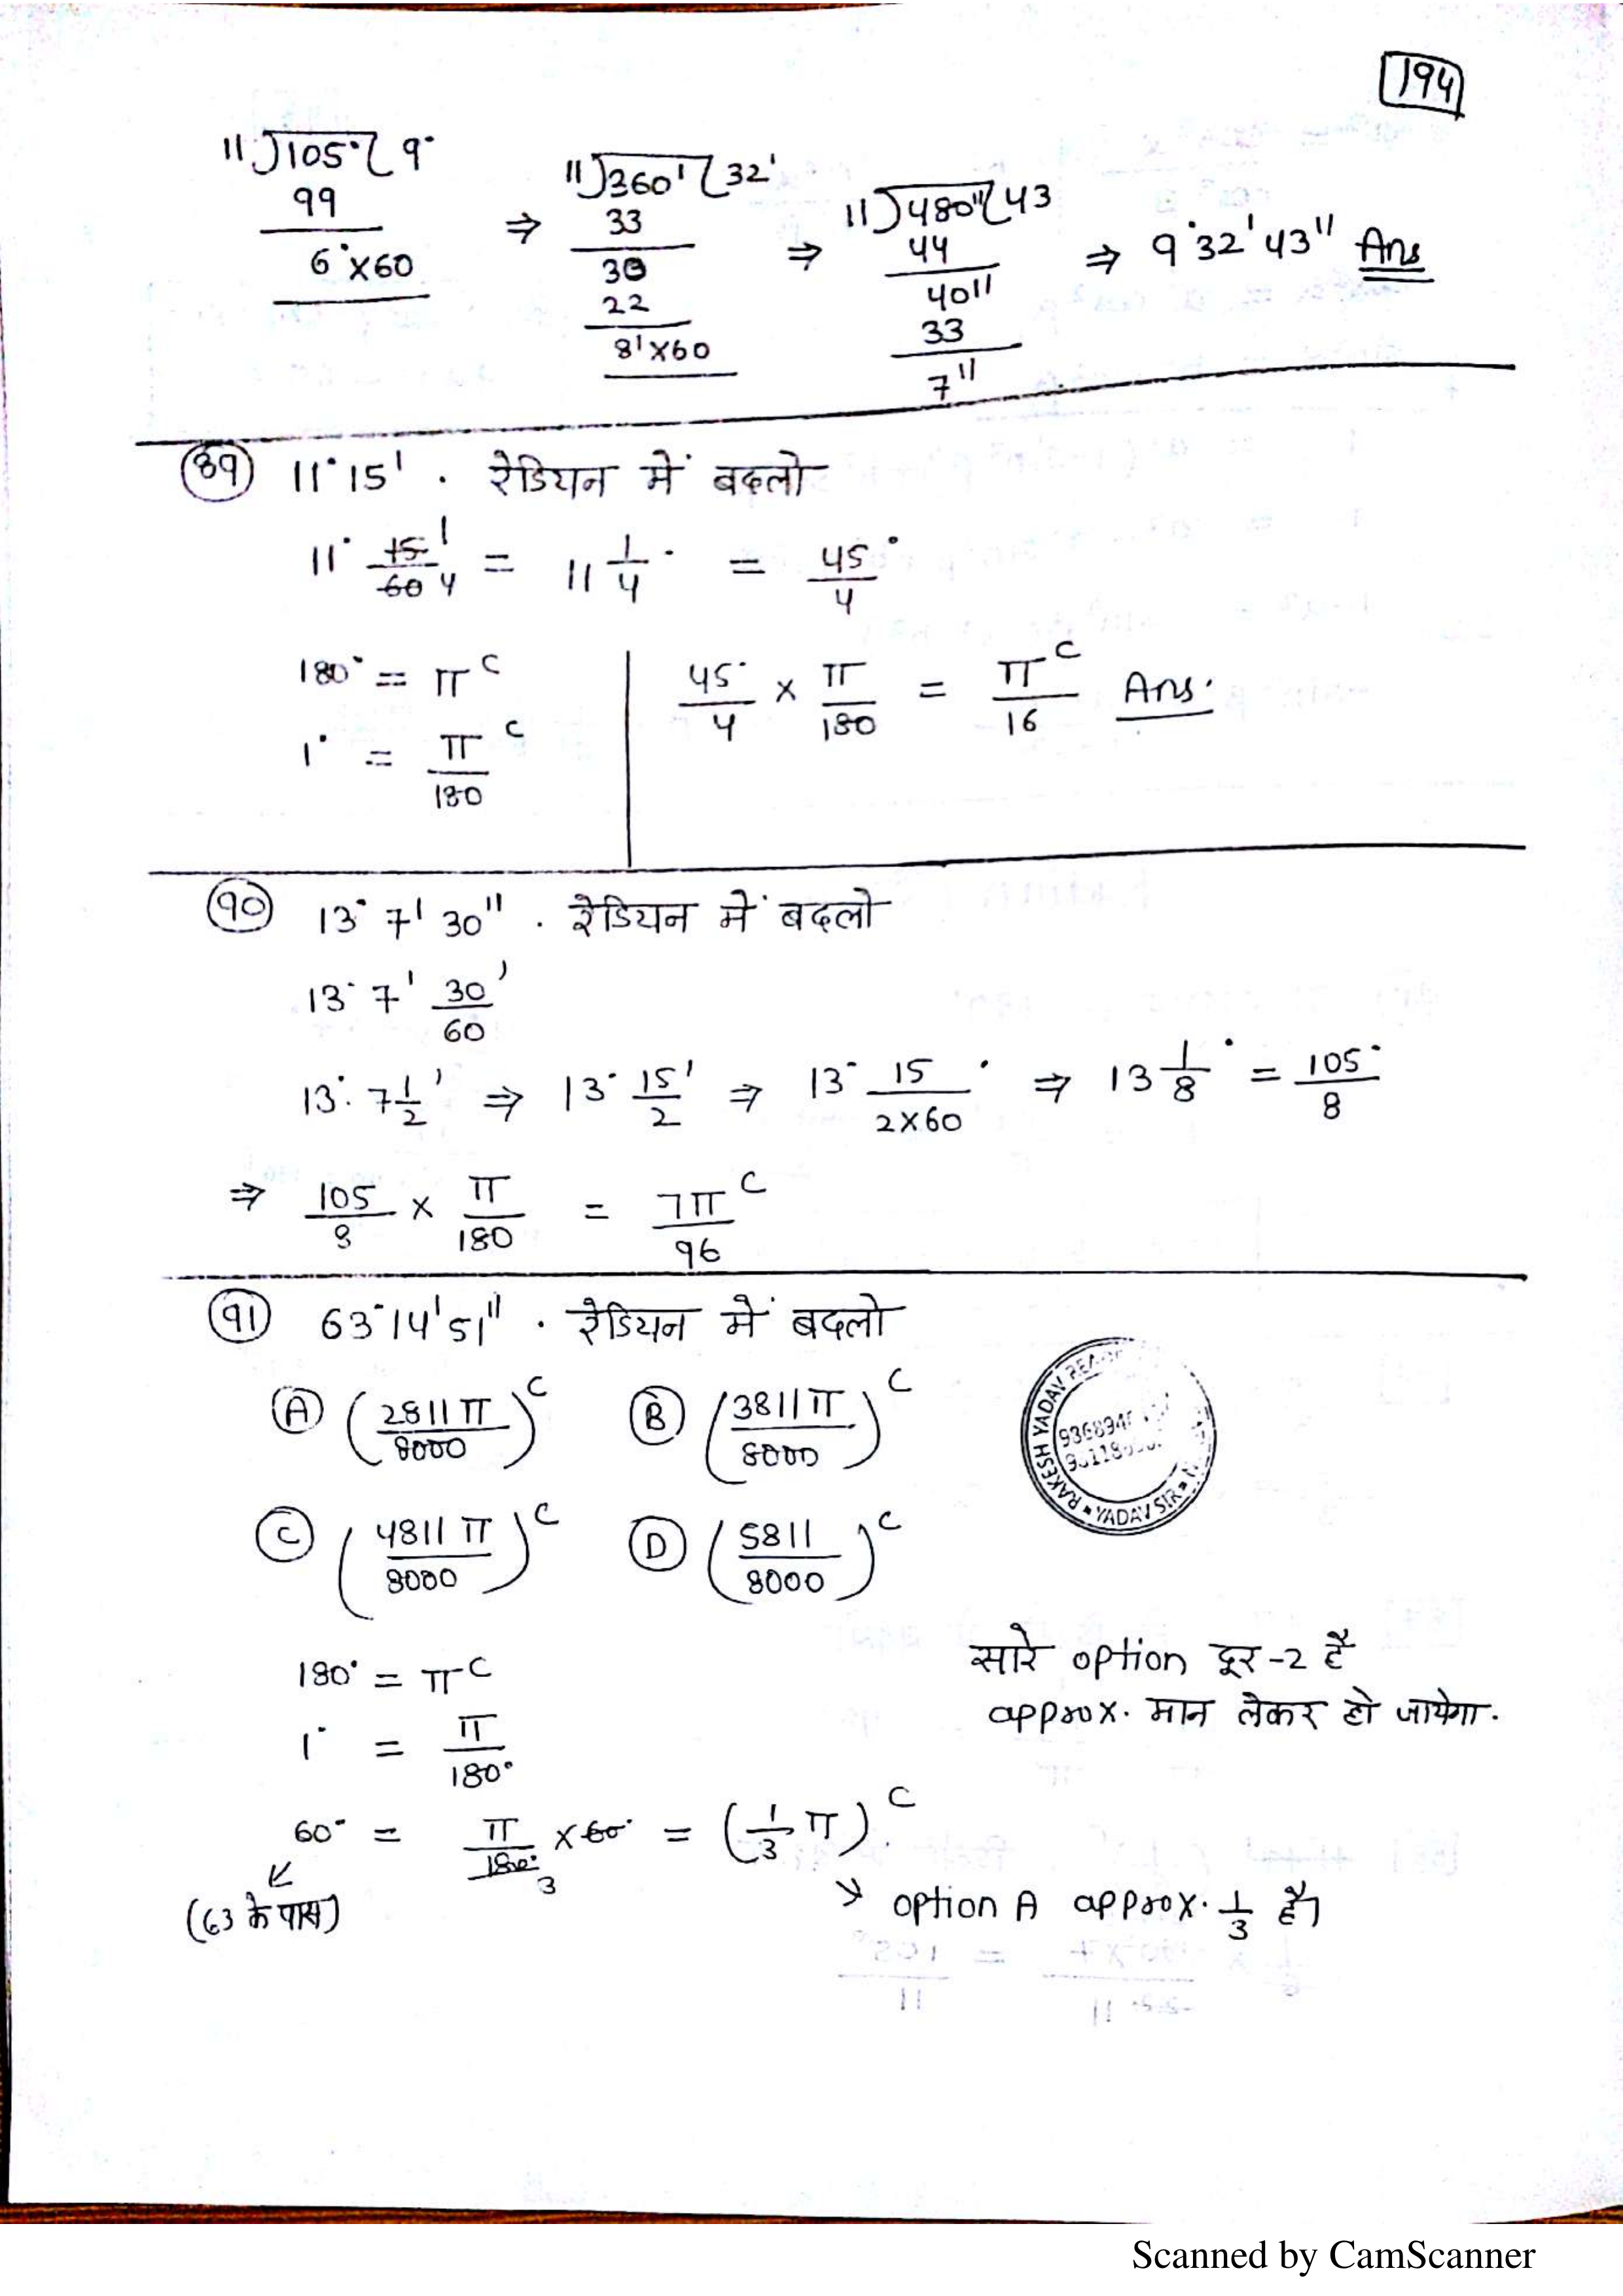 194
11)105°(9°
99
6°×60
⇒ 11)360'(32'
33
30
22
8'×60
⇒ 11)480"(43
44
40"
33
7"
⇒ 9°32'43" Ans
89 11°15' . रेडियन में बदलो
11° 15/60 1/4 = 11 1/4° = 45/4°
180° = π^c
1° = π/180^c
45°/4 × π/180 = π^c/16 Ans.
90 13° 7' 30" . रेडियन में बदलो
13° 7' 30/60'
13° 7 1/2' ⇒ 13° 15/2' ⇒ 13° 15/2×60° ⇒ 13 1/8° = 105°/8
⇒ 105/8 × π/180 = 7π^c/96
91 63°14'51" . रेडियन में बदलो
A (2811π/8000)^c B (3811π/8000)^c
C (4811π/8000)^c D (5811/8000)^c
RAKESH YADAV
YADAV SIR
180° = π^c
1° = π/180°
60° = π/180° 3 ×60° = (1/3 π)^c
(63 के पास)
सारे option दूर-2 है
approx. मान लेकर हो जायेगा.
→ option A approx. 1/3 है।
Scanned by CamScanner